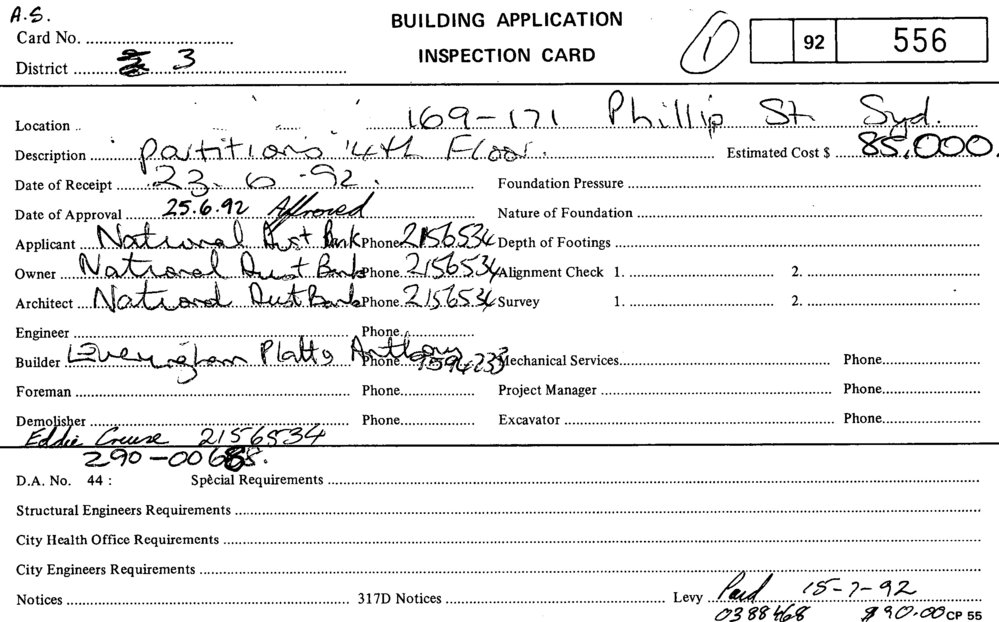 A.S.
BUILDING APPLICATION
INSPECTION CARD
Card No. 
1 92 556
District 3
Location 169-171 Phillip St Syd.
Description Partitions 14th Floor. Estimated Cost $ 85,000.
Date of Receipt 23.6.92. Foundation Pressure
Date of Approval 25.6.92 Approved Nature of Foundation
Applicant National Aust Bank Phone 2156534 Depth of Footings
Owner National Aust Bank Phone 2156534 Alignment Check 1. 2.
Architect National Aust Bank Phone 2156534 Survey 1. 2.
Engineer Phone
Builder Leveringham Platts Anthony Phone 9594233 Mechanical Services Phone
Foreman Phone Project Manager Phone
Demolisher Phone Excavator Phone
Eddie 2156534
D.A. No. 44 : Special Requirements
Structural Engineers Requirements
City Health Office Requirements
City Engineers Requirements
Notices 317D Notices Levy Paid 15-7-92
0388468 $90.00 CP 55